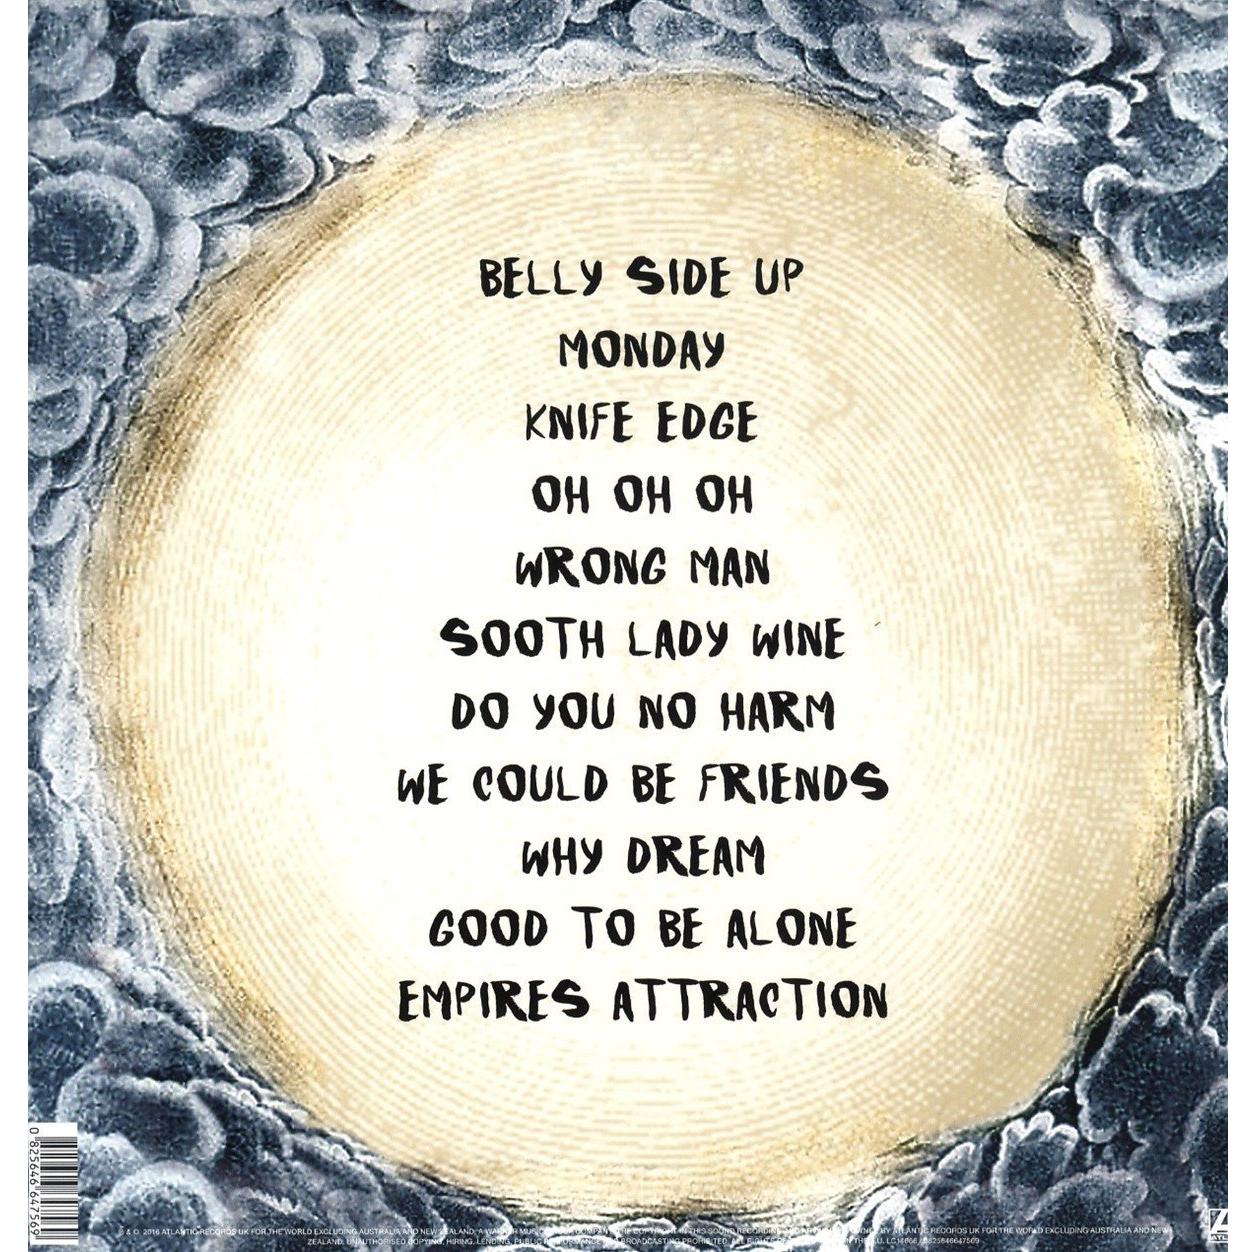 BELLY SIDE UP
MONDAY
KNIFE EDGE
OH OH OH
WRONG MAN
SOOTH LADY WINE
DO YOU NO HARM
WE COULD BE FRIENDS
WHY DREAM
GOOD TO BE ALONE
EMPIRES ATTRACTION
0 825646 647569
& © 2016 ATLANTIC RECORDS UK FOR THE WORLD EXCLUDING AUSTRALIA AND NEW ZEALAND. A WARNER MUSIC COMPANY. THE COPYRIGHT IN THIS SOUND RECORDING OWNED BY ATLANTIC RECORDS UK FOR THE WORLD EXCLUDING AUSTRALIA AND NEW
ZEALAND. UNAUTHORISED COPYING, HIRING, LENDING, PUBLIC PERFORMANCE BROADCASTING PROHIBITED. ALL RIGHTS IN THE E.U. LC14666 / 0825646647569